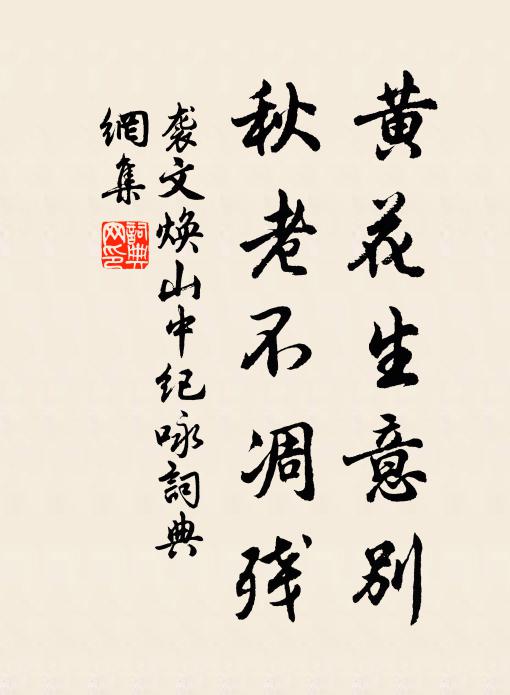 黄花生意别
秋老不凋残
袭文焕山中纪咏詞典
網集
詞典
网印